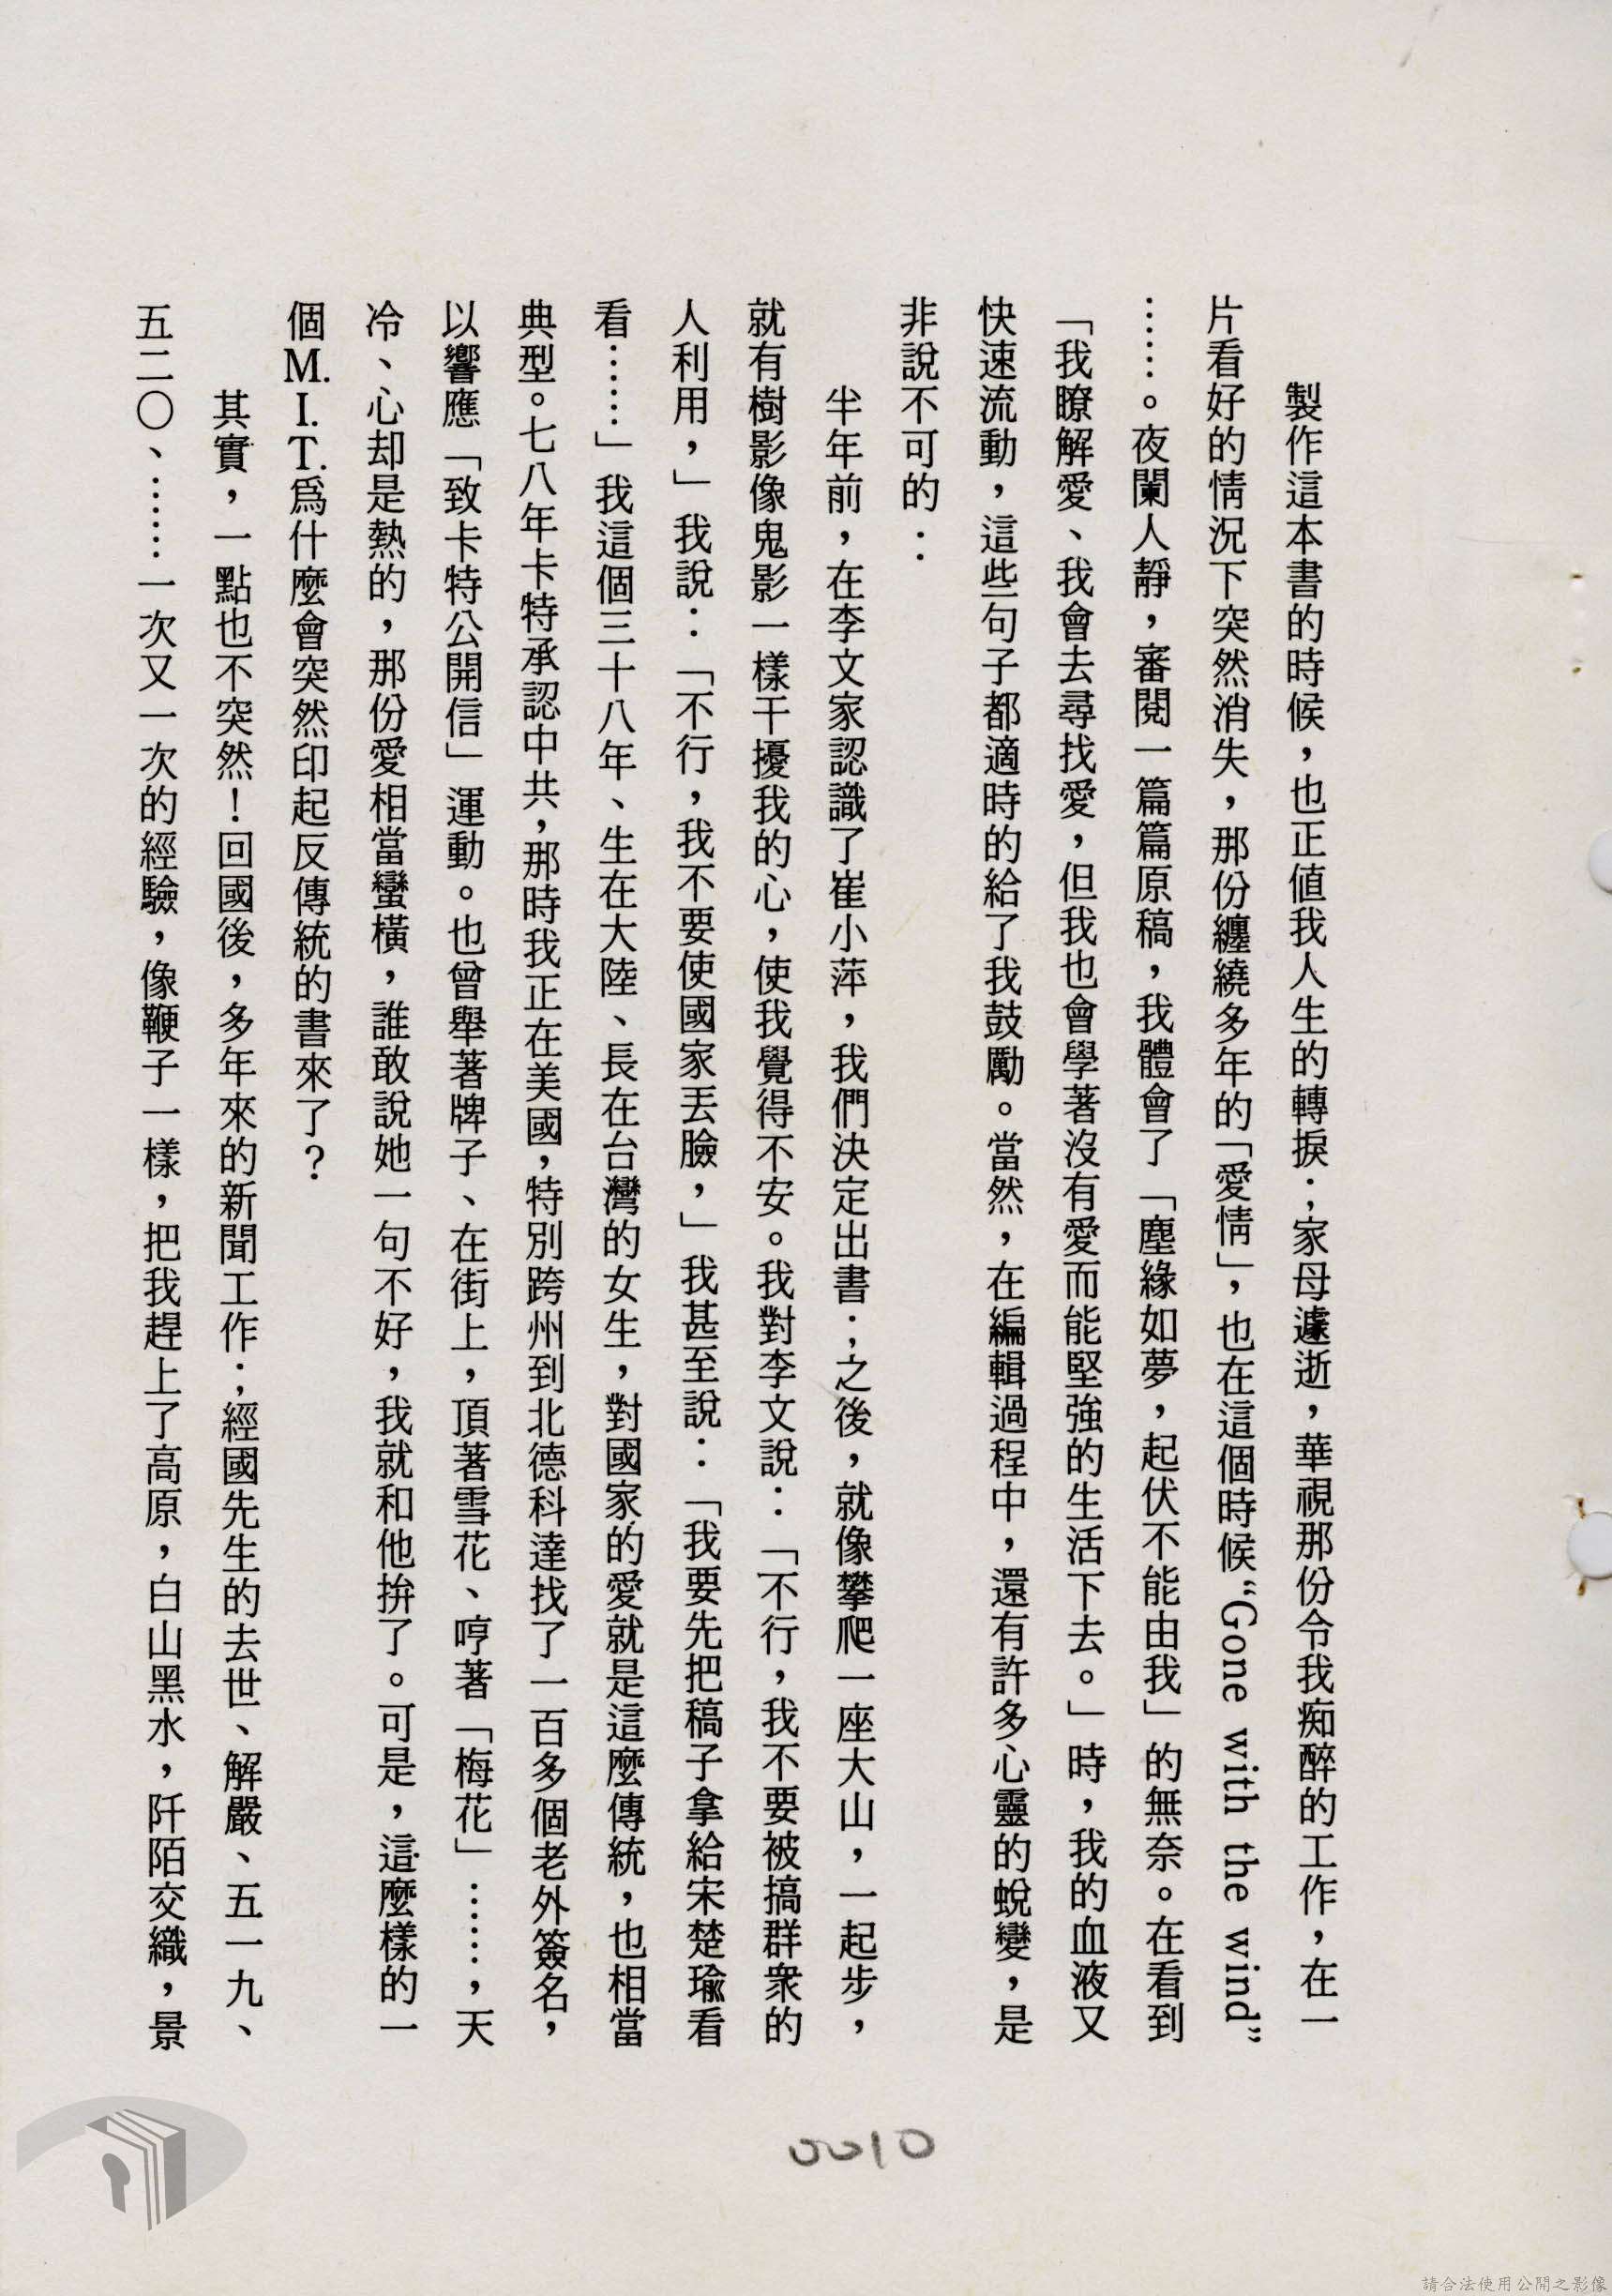 製作這本書的時候，也正值我人生的轉捩；家母遽逝，華視那份令我痴醉的工作，在一
片看好的情況下突然消失，那份纏繞多年的「愛情」，也在這個時候“Gone with the wind”
……。夜闌人靜，審閱一篇篇原稿，我體會了「塵緣如夢，起伏不能由我」的無奈。在看到
「我瞭解愛、我會去尋找愛，但我也會學著沒有愛而能堅強的生活下去。」時，我的血液又
快速流動，這些句子都適時的給了我鼓勵。當然，在編輯過程中，還有許多心靈的蛻變，是
非說不可的：
半年前，在李文家認識了崔小萍，我們決定出書；之後，就像攀爬一座大山，一起步，
就有樹影像鬼影一樣干擾我的心，使我覺得不安。我對李文說：「不行，我不要被搞群衆的
人利用，」我說：「不行，我不要使國家丟臉，」我甚至說：「我要先把稿子拿給宋楚瑜看
看……」我這個三十八年、生在大陸、長在台灣的女生，對國家的愛就是這麼傳統，也相當
典型。七八年卡特承認中共，那時我正在美國，特別跨州到北德科達找了一百多個老外簽名，
以響應「致卡特公開信」運動。也曾舉著牌子、在街上，頂著雪花、哼著「梅花」……，天
冷、心却是熱的，那份愛相當蠻橫，誰敢說她一句不好，我就和他拚了。可是，這麼樣的一
個M.I.T.爲什麼會突然印起反傳統的書來了？
其實，一點也不突然！回國後，多年來的新聞工作；經國先生的去世、解嚴、五一九、
五二〇、……一次又一次的經驗，像鞭子一樣，把我趕上了高原，白山黑水，阡陌交織，景
0010
請合法使用公開之影像